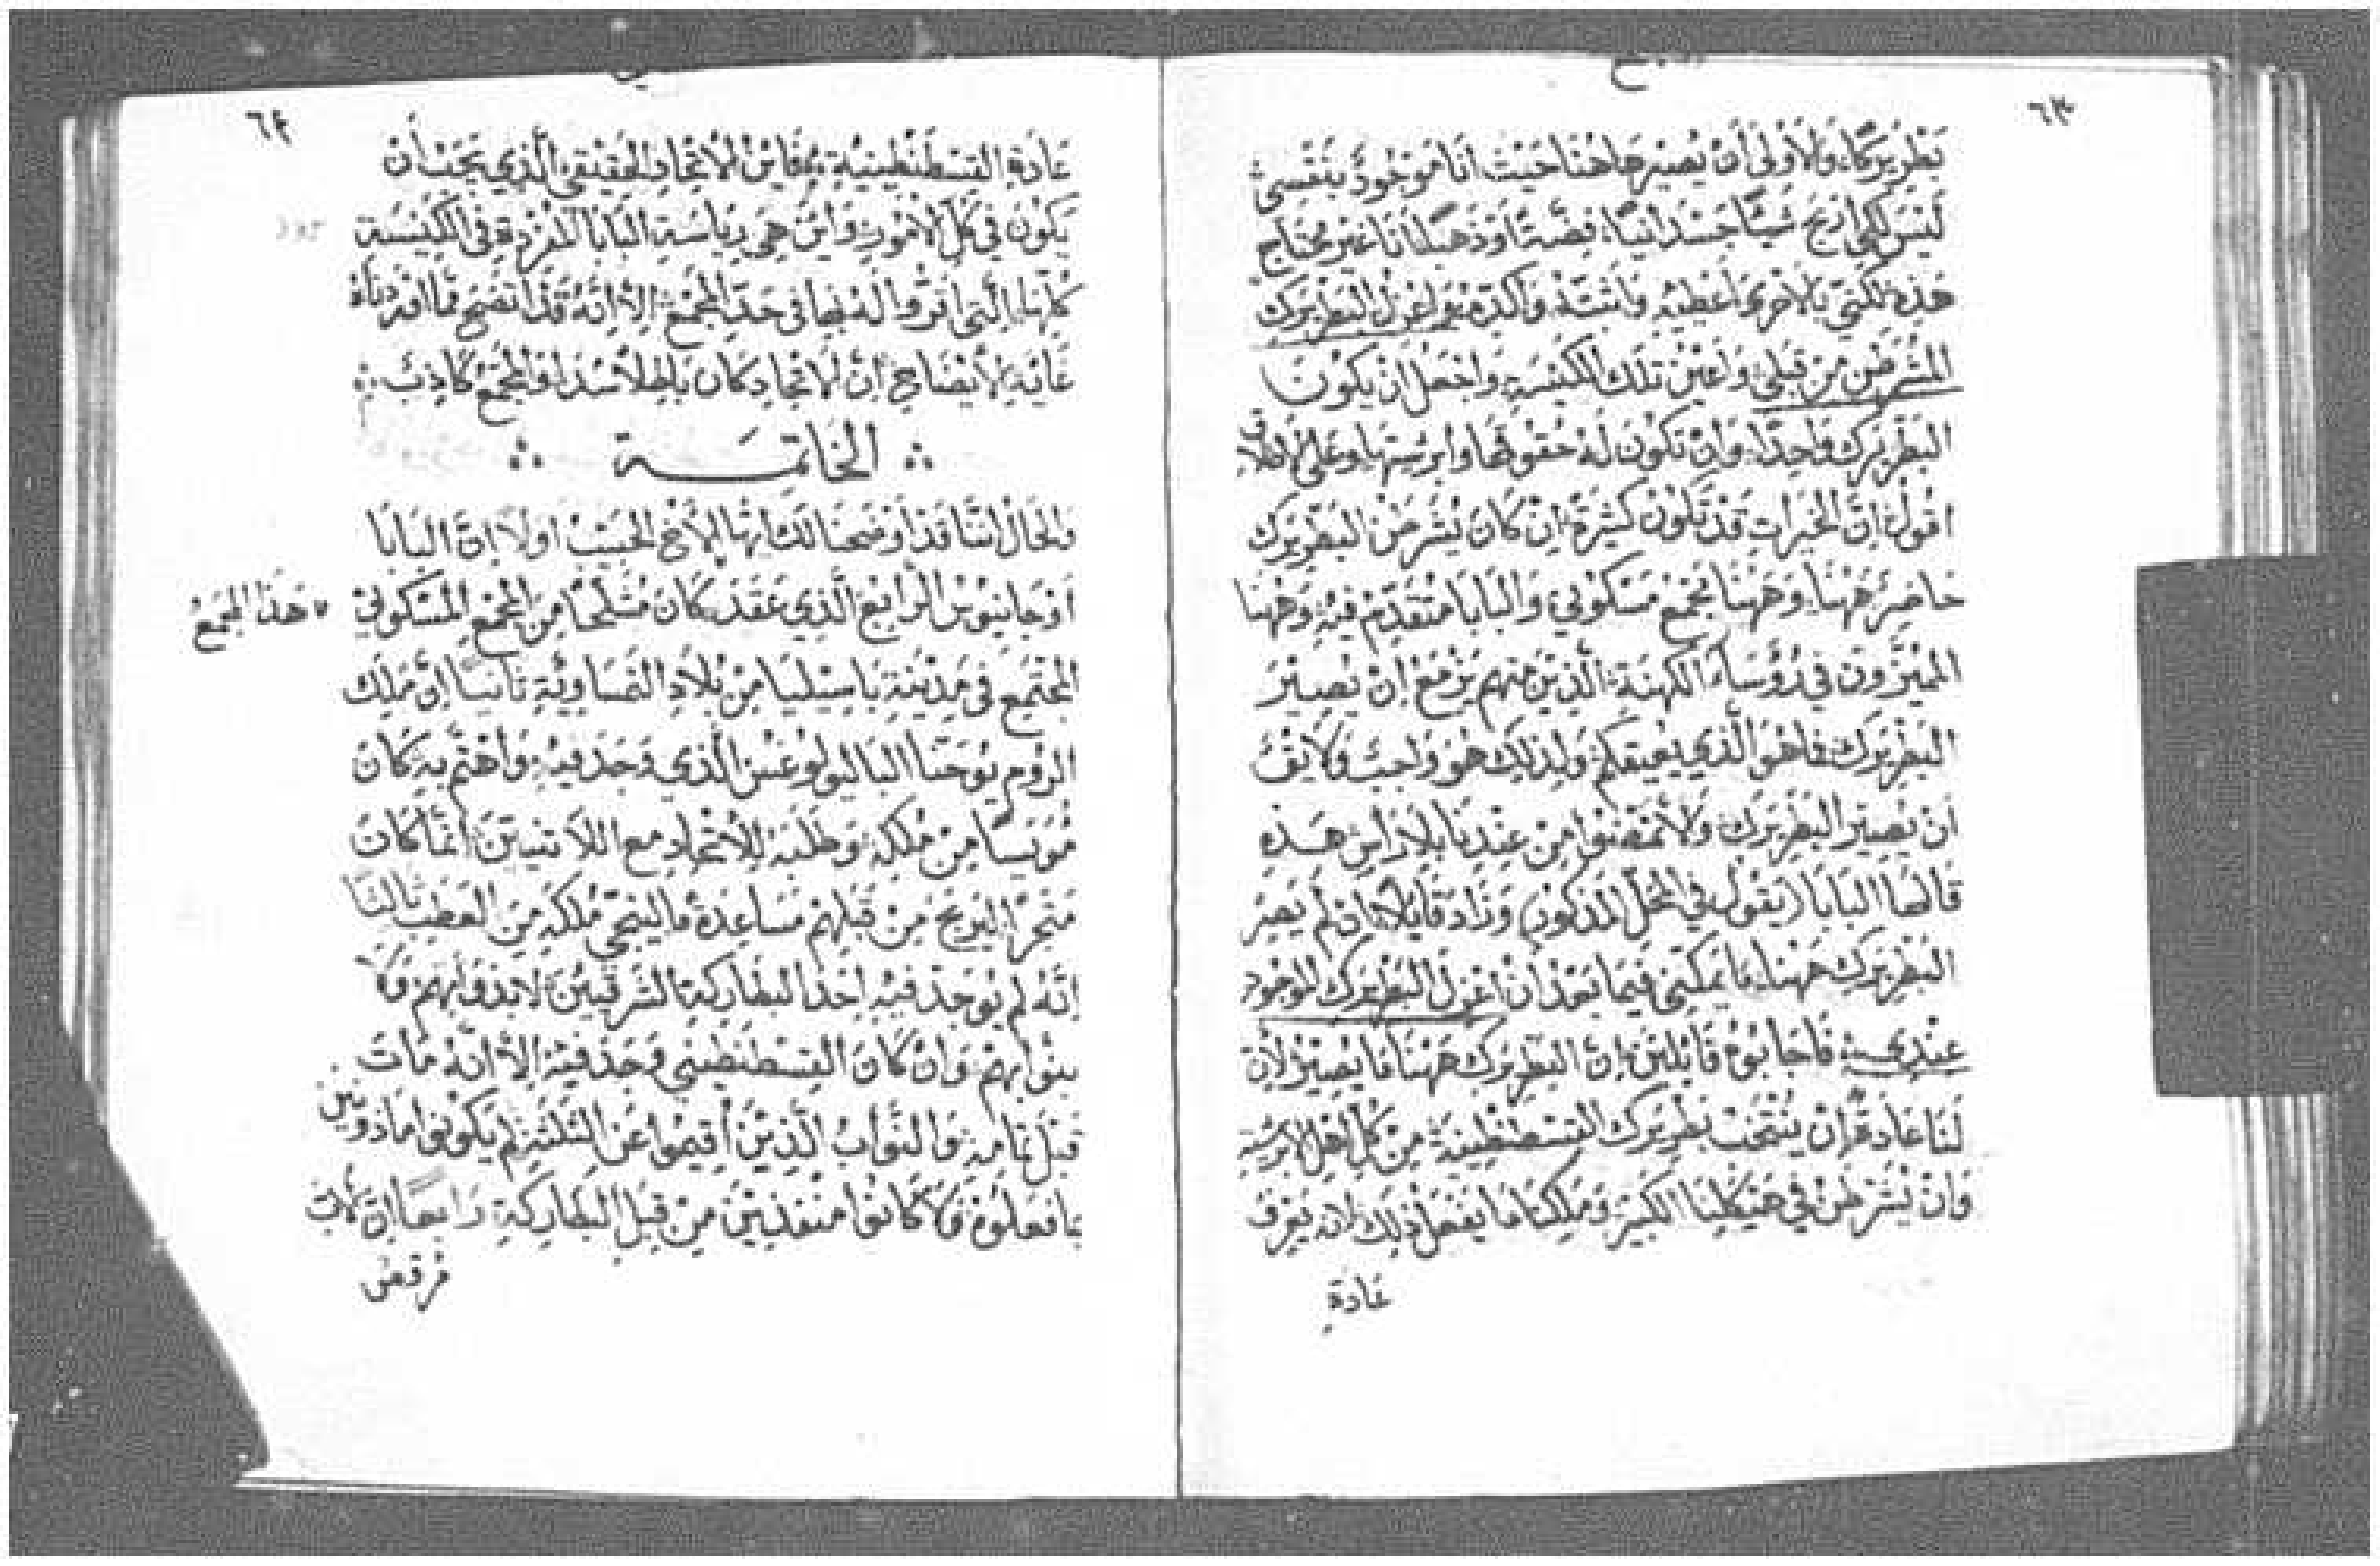 ٦٣
بَطْرِيَرْكًا، وَالأَوْلَى أَنْ يُصِيرَ هَاهُنَا حَيْثُ أَنَا مَوْجُودٌ بِنَفْسِي
لَيْسَ لِكَي ارْبَحَ شَيْئًا جَسْدَانِيًّا، فِضَّةً اوْ ذَهَبًا لأَنَا غَيْر مُحْتَاجٍ
هَذِهِ لَكِنِّي بِالأَحْرَى اعْطِيهِ وَاثَبِّتهُ وَاكِدهُ وَاعْزِلُ البَطْرِيَرْكَ
المُشَرْطَنَ مِنْ قِبَلِي وَاعِين تِلْكَ الكَنِيسَةِ وَاجْعَلُ انْ يَكُونَ
البَطْرِيَرْك وَاحِدًا، وَانْ تَكُونَ لَهُ حُقُوقُهَا وَابْرَشِيتهَا وَعَلَى الاطلاق
اقُولُ، انَّ الخَيْرَاتِ قَدْ تَكُونُ كَثِيرَةً انْ كَانَ يُشَرْطَنُ البَطْرِيَرْك
حَاضِرٌ هَهُنَا، وَهَهُنَا مَجْمَعٌ مَسْكُونِي، وَالبَابَا مُتَقَدِّمٌ فِيهِ، وَهَهُنَا
المُمَيَّزُونَ فِي رُؤَسَاءِ الكَهَنَةِ، الَّذِينَ مِنْهُم يَزْمَعُ انْ يُصِيرَ
البَطْرِيَرْك، فَمَا هُوَ الَّذِي يُعِيقكُم، وَلِذَلِكَ هُوَ وَاجِبٌ وَلاَيِقٌ
انْ يُصِيرَ البَطْرِيَرْك، وَلاَ تَمْضُوا مِنْ عِنْدِنَا بِلاَ رَاسٍ هَذِهِ
قَالَهَا البَابَا (يَقُولُ فِي المَحَلِّ المَذْكُورِ) وَزَادَ قَايِلاً، انْ لَمْ يَصِرْ
البَطْرِيَرْك هَهُنَا، مَا يُمَكِّنِّي فِيمَا بَعْدُ انْ اعْزِلَ البَطْرِيَرْكَ المَوْجُود
عِنْدِي، فَاجَابُوهُ قَايِلِينَ، انَّ البَطْرِيَرْك هَهُنَا مَا يُصِيرُ لأَنَّ
لَنَا عَادَةً انْ يُنْتَخَبَ بَطْرِيَرْك القِسْطَنْطِينِيَّةِ مِنْ كُلِّ اهْلِ الابْرَشِيَّةِ
وَانْ يُشَرْطَنَ فِي هَيْكَلِنَا الكَبِيرِ، وَمَلِكنَا مَا يَفْعَلُ ذَلِكَ لانهُ يَعْرِفُ
عَادَةِ
٦٤
عَادَةِ القِسْطَنْطِينِيَّةِ، فَايْنَ الاتِّحَادُ الحَقِيقِيُّ الَّذِي يَجِبُ أَنْ
يَكُونَ فِي كُلِّ الامُورِ، وَايْنَ هِيَ رِيَاسَةِ البَابَا المُفْرَدَةِ فِي الكَنِيسَةِ
كُلِّهَا، الَّتِي اقَرُّوا لَهُ بِهَا فِي حَدِّ المَجْمَعِ، الاَّ انَّهُ قَدْ اتَّضَحَ مِمَّا اوْرَدْنَاهُ
غَايَةَ الاِيضَاحِ، انَّ الاتِّحَادَ كَانَ بَاطِلاً سُدًا، وَالمَجْمَعَ كَاذِبٌ ؞
؞ الخَاتِمَة ؞
وَالحَالُ انَّنَا قَدْ اوْضَحْنَا لَكَ ايُّهَا الأَخُ الحَبِيبُ اوَلاً، انَّ البَابَا
اوْجَانِيُوسَ الرَّابِعَ الَّذِي عَقَدَ كَانَ مُشَلَّحًا مِنَ المَجْمَعِ المَسْكُونِيِّ
هَذَا المَجْمَعُ
المُجْتَمِعِ فِي مَدِينَةِ بَاسِيلِيَا مِنْ بِلاَدِ النَّمْسَاوِيَّةِ، ثَانِيًا انَّ مَلِكَ
الرُّومِ يُوحَنَّا البَالِيُولُوغُسَ الَّذِي وَجَدَ فِيهِ وَاهْتَمَّ بِهِ كَانَ
مُويَسًا مِنْ مُلْكِهِ، وَطَلَبَهُ لِلاتِّحَادِ مَعَ اللاَّتِينِيِّينَ انَّمَا كَانَ
مَتْجَرًا لِيَرْبَحَ مِنْ قِبَلِهِمْ مُسَاعِدَةً مَا لِيُنَجِّي مُلْكَهِ مِنَ العَطَبِ، ثَالِثًا
انَّهُ لَمْ يُوجَدْ فِيهِ احَدُ البَطَارِكَةِ الشَّرْقِيِّينَ لاَ بِذَوَاتِهِمْ وَلاَ
بِنُوَّابِهِمْ، وَانْ كَانَ القِسْطَنْطِينِي وُجَدَ فِيهِ، الاَّ انَّهُ مَاتَ
قَبْلَ تَمَامِهِ، وَالنُّوَّابُ الَّذِينَ أُقِيمُوا عَنِ الثَّلَثَةِ لَمْ يَكُونُوا مَاذُونِين
بِمَا فَعَلُوهُ وَلاَ كَانُوا مُنْفَذِينَ مِنْ قِبَلِ البَطَارِكَةِ، رَابِعًا، انَّ
مَرْقُص